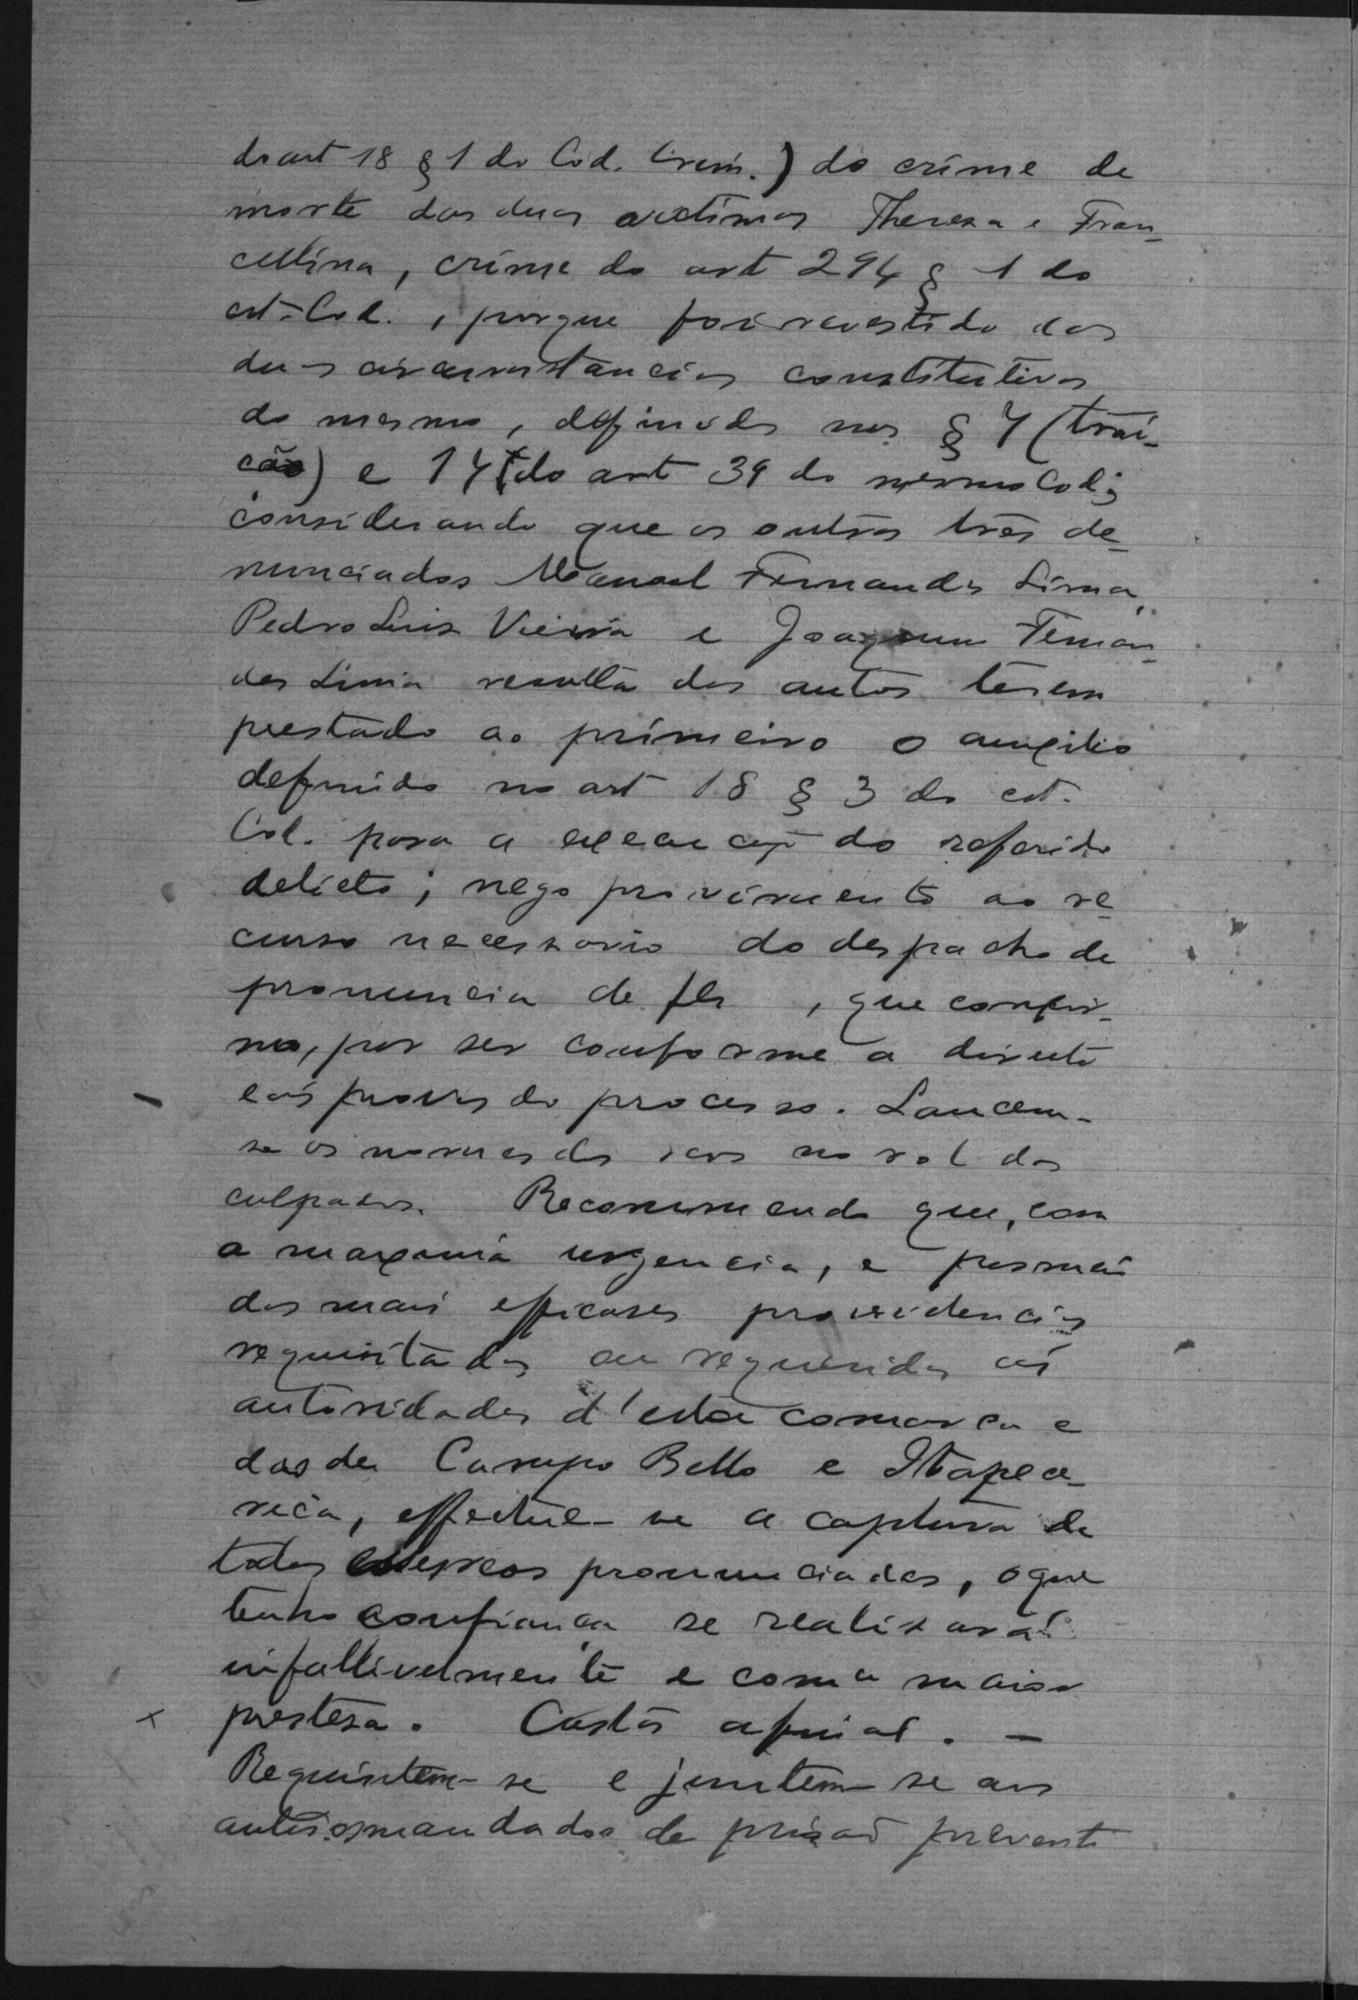 do art 18 § 1 do Cod. Crim.) do crime de
morte das duas victimas Thereza e Fran-
cellina, crime do art 294 § 1 do
cit. Cod., porque foi revestido das
duas circumstancias constitutivas
do mesmo, definidas nos § 7 (trai-
ção) e 17 do art 39 do mesmo Cod;
considerando que os outros tres de-
nunciados Manoel Fernandes Lima,
Pedro Luis Vieira e Joaquim Fernan-
des Lima resulta dos autos terem
prestado ao primeiro o auxilio
definido no art 18 § 3 do cit.
Cod. para a execução do referido
delicto; nego provimento ao re-
curso necessario do despacho de
pronuncia de fls , que confir-
mo, por ser conforme a direito
e ás provas do processo. Lancem-
se os nomes dos reos no rol dos
culpados. Recommendo que, com
a maxima urgencia, e por meio
das mais efficases providencias
requisitadas ou requeridas ás
autoridades d'esta comarca e
das de Campo Bello e Itapece-
rica, effectue-se a captura de
todos reos pronunciados, o que
tenho confiança se realisará
infallivelmente e com a maior
prestesa. Custas afinal. —
Requisitem-se e juntem-se aos
autos os mandados de prisão preventi